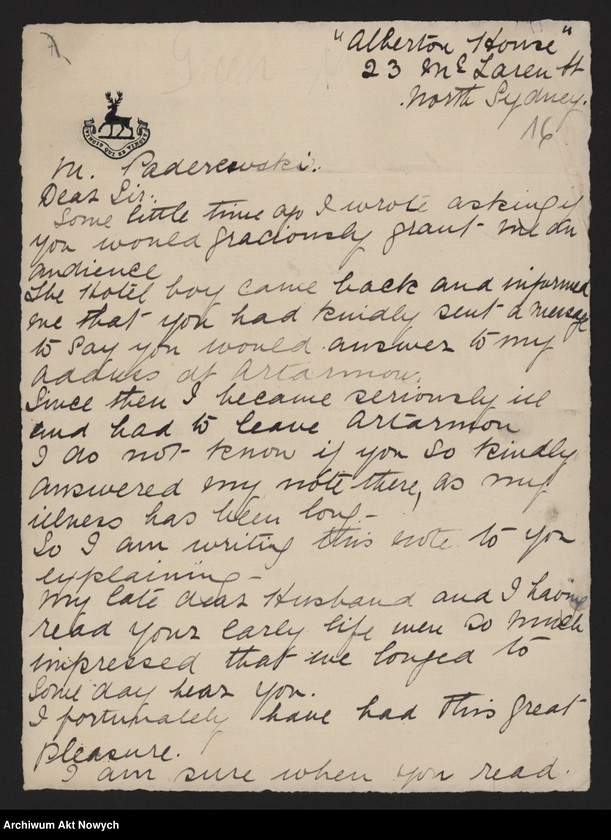 "Alberton House"
23 McLaren St
North Sydney.
16
VINCIT QUI SE VINCIT
M. Paderewski.
Dear Sir.
Some little time ago I wrote asking if
you would graciously grant me an
audience
The Hotel boy came back and informed
me that you had kindly sent a message
to say you would answer to my
address at Artarmon.
Since then I became seriously ill
and had to leave Artarmon
I do not know if you so kindly
answered my note there, as my
illness has been long -
So I am writing this note to you
explaining -
My late dear Husband and I having
read your early life were so much
impressed that we longed to
some day hear you.
I fortunately have had this great
pleasure.
I am sure when you read.
Archiwum Akt Nowych